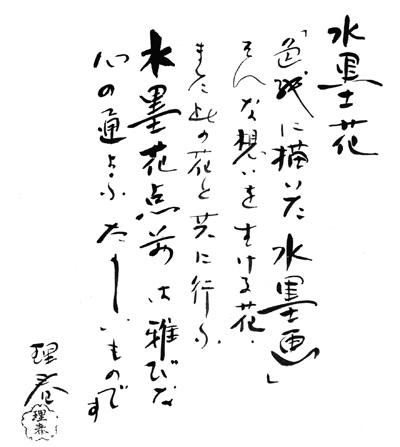 水墨花
「色紙に描いた水墨画」
そんな想いを生ける花.
また此の花と共に行う
水墨花点前は雅びな
心の通よふたのしいものです
理春
理春